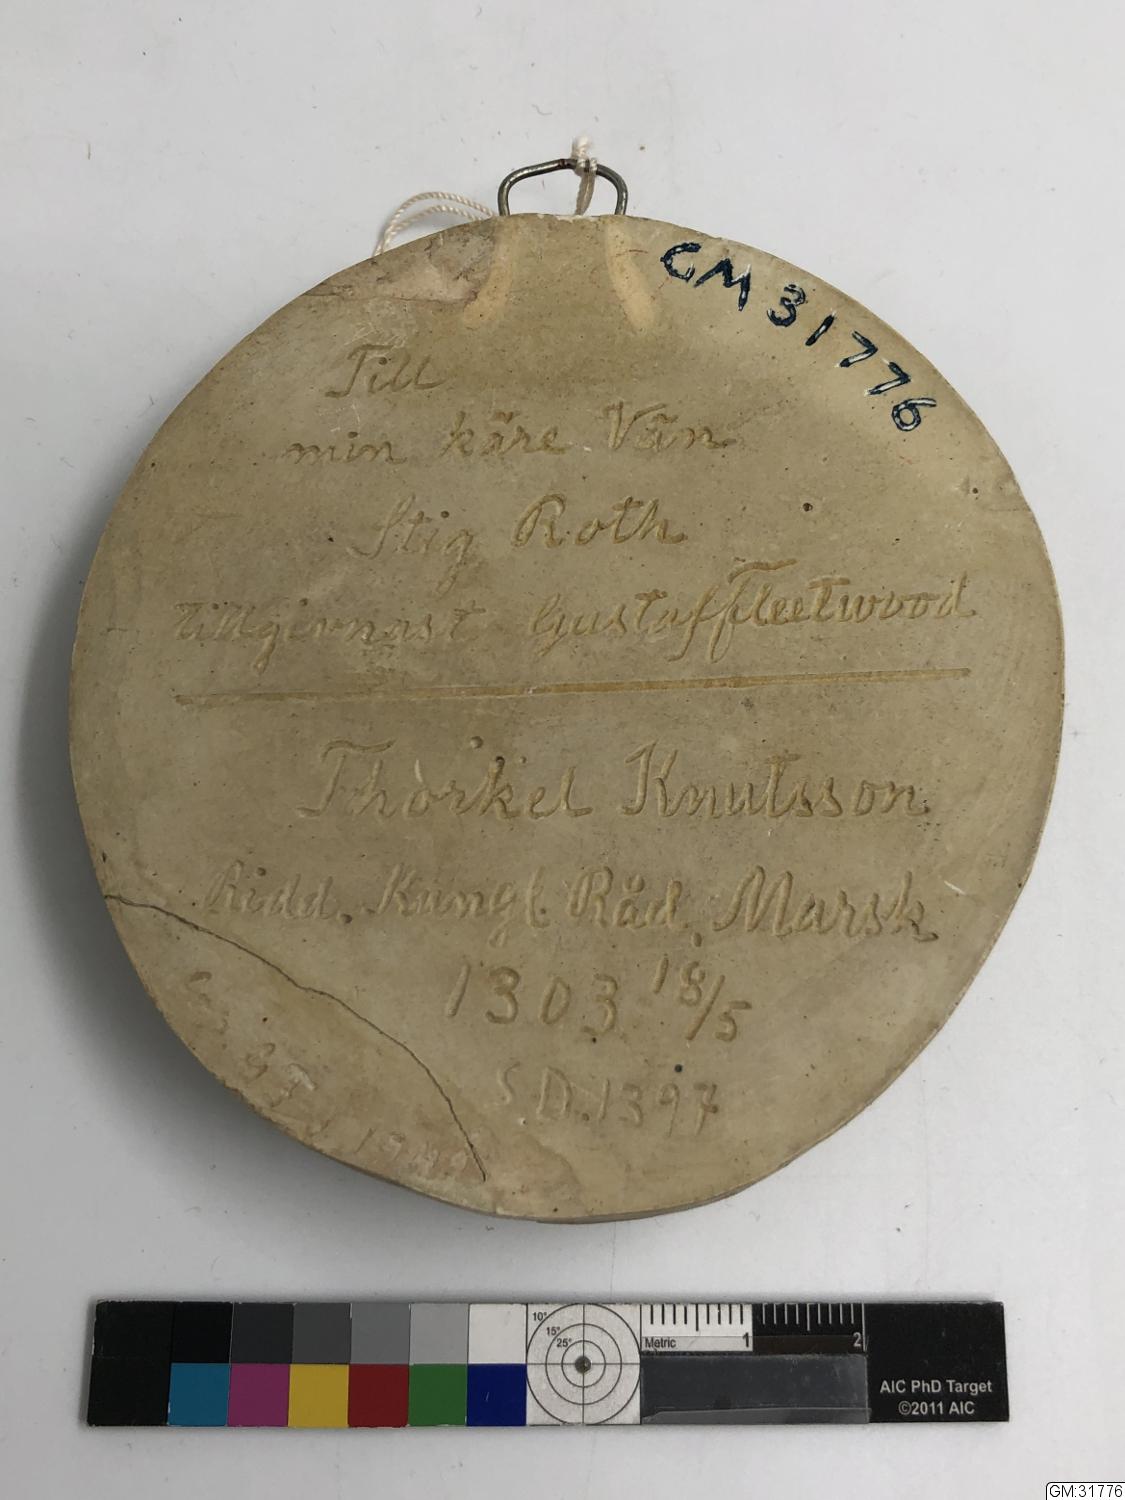 GM 31776
Till
min käre Vän
Stig Roth
tillgivnast Gustaf Fleetwood
Thorkel Knutsson
Ridd. Kungl. Råd. Marsk
1303 18/5
S D. 1397
10°
15°
25°
Metric 1 2
AIC PhD Target
©2011 AIC
GM:31776